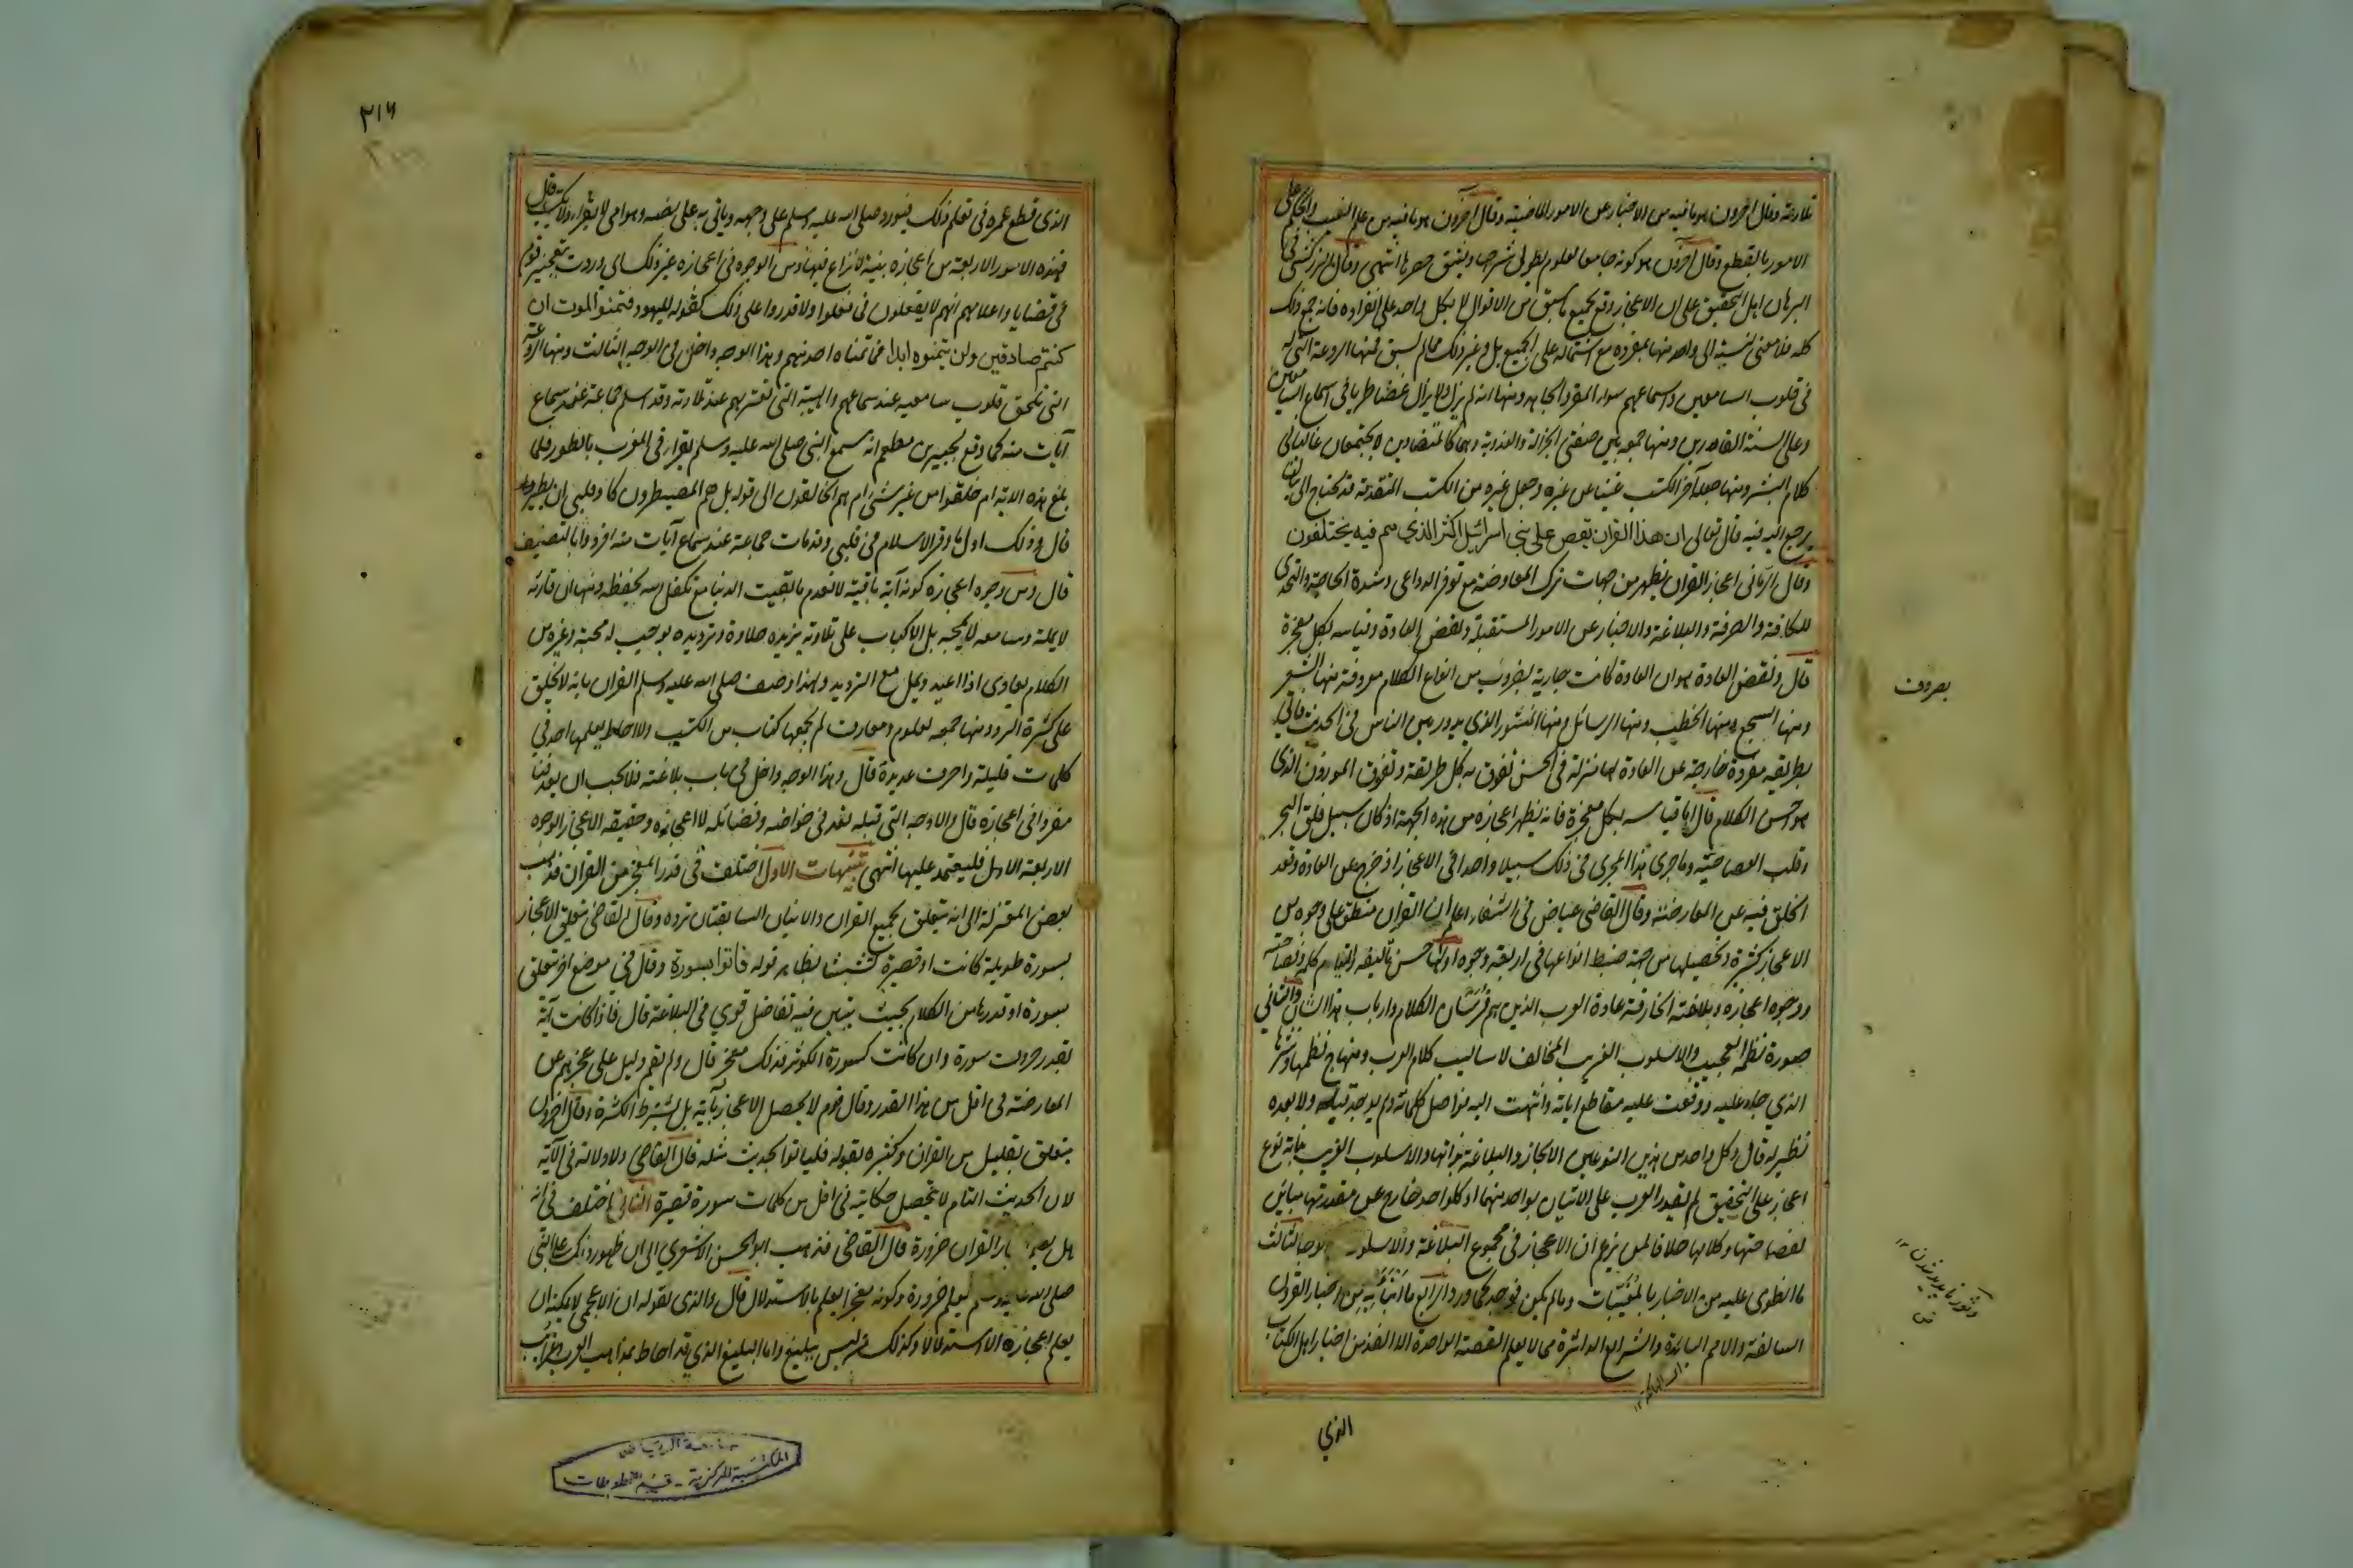 تلاوته وقال آخرون هو ما فيه من الاخبار عن الامور الماضية وقال آخرون هو ما فيه من علم الغيب والحكم على
الامور بالقطع وقال آخرون هو كونه جامعا لعلوم يطول شرحها ويشق حصرها انتهى وقال الزركشي في
البرهان اهل التحقيق على ان الاعجاز وقع بجميع ما سبق من الاقوال لا بكل واحد على انفراده فانه جمع ذلك
كله فلا معنى لنسبته الى واحد منها بمفرده مع اشتماله على الجميع بل وغير ذلك مما لم يسبق فمنها الروعة التي له
في قلوب السامعين واسماعهم سواء المقر والجاحد ومنها انه لم يزل ولا يزال غضا طريا في اسماع السامعين
وعلى السنة القاصرين ومنها جمعه بين صفتي الجزالة والعذوبة وهما كالمتضادين لا يجتمعان غالبا في
كلام البشر ومنها جعله آخر الكتب غنيا عن غيره وجعل غيره من الكتب المتقدمة قد يحتاج الى بيان
يرجع اليه فيه قال تعالى ان هذا القران يقص على بني اسرائيل اكثر الذي هم فيه يختلفون
وقال الرماني اعجاز القران يظهر من جهات ترك المعارضة مع توفر الدواعي وشدة الحاجة والتحدي
للكافة والصرفة والبلاغة والاخبار عن الامور المستقبلة ونقض العادة وقياسه بكل معجزة
قال ونقض العادة هو ان العادة كانت جارية بضروب من انواع الكلام معروفة منها الشعر
ومنها السجع ومنها الخطب ومنها الرسائل ومنها المنثور الذي يدور بين الناس في الحديث فاتى
بطريقة مفردة خارجة عن العادة لها منزلة في الحسن تفوق به كل طريقة وتفوق الموزون الذي
هو احسن الكلام قال اما قياسه بكل معجزة فانه يظهر اعجازه من هذه الجهة اذ كان سبيل فلق البحر
وقلب العصا حية وما جرى هذا المجرى في ذلك سبيلا واحدا في الاعجاز اذ خرج عن العادة وقعد
الخلق فيه عن المعارضة وقال القاضي عياض في الشفاء اعلم ان القران منطو على وجوه من
الاعجاز كثيرة وتحصيلها من جهة ضبط انواعها في اربعة وجوه اولها حسن تاليفه والتيام كلمه وفصاحته
ووجوه اعجازه وبلاغته الخارقة عادة العرب الذين هم فرسان الكلام وارباب هذا الشان والثاني
صورة نظمه العجيب والاسلوب الغريب المخالف لاساليب كلام العرب ومنهاج نظمها ونثرها
الذي جاء عليه ووقفت عليه مقاطع اياته وانتهت اليه فواصل كلماته ولم يوجد قبله ولا بعده
نظير له قال وكل واحد من هذين النوعين الايجاز والبلاغة بذاتها والاسلوب الغريب بذاته نوع
اعجاز على التحقيق لم تقدر العرب على الاتيان بواحد منهما اذ كل واحد خارج عن مقدرتها مباين
لفصاحتها وكلامها خلافا لمن زعم ان الاعجاز في مجموع البلاغة والاسلوب الوجه الثالث
ما انطوى عليه من الاخبار بالمغيبات وما لم يكن فوجد كما ورد الرابع ما انبأ به من اخبار القرون
السالفة والامم البائدة والشرائع الداثرة مما لا يعلم القصة الواحدة الا الفذ من اخبار اهل الكتاب
الذي
٣١٦
الذي قطع عمره في تعلم ذلك فيورده صلى الله عليه وسلم على وجهه وياتي به على نصه وهو امي لا يقرا ولا يكتب قال
فهذه الامور الاربعة من اعجازه بينة لا نزاع فيها ومن الوجوه في اعجازه غير ذلك اي وردت بتعجيز قوم
في قضايا واعلامهم انهم لا يفعلون فما فعلوا ولا قدروا على ذلك كقوله لليهود فتمنوا الموت ان
كنتم صادقين ولن يتمنوه ابدا فما تمناه احد منهم وهذا الوجه داخل في الوجه الثالث ومنها الروعة
التي تلحق قلوب سامعيه عند سماعهم والهيبة التي تعتريهم عند تلاوته وقد اسلم جماعة عند سماع
آيات منه كما وقع لجبير بن مطعم انه سمع النبي صلى الله عليه وسلم يقرا في المغرب بالطور فلما
بلغ هذه الاية ام خلقوا من غير شئ ام هم الخالقون الى قوله بل هم المصيطرون كاد قلبي ان يطير
قال وذلك اول ما وقر الاسلام في قلبي وقد مات جماعة عند سماع آيات منه افردوا بالتصنيف
قال ومن وجوه اعجازه كونه آية باقية لا تعدم ما بقيت الدنيا مع تكفل الله بحفظه ومنها ان قارئه
لا يمله وسامعه لا يمجه بل الاكباب على تلاوته يزيده حلاوة وترديده يوجب له محبة وغيره من
الكلام يعادى اذا اعيد ويمل مع الترديد ولهذا وصف صلى الله عليه وسلم القران بانه لا يخلق
على كثرة الرد ومنها جمعه لعلوم ومعارف لم يجمعها كتاب من الكتب ولا احاط بعلمها احد في
كلمات قليلة واحرف عديدة قال وهذا الوجه داخل في باب بلاغته فلا يجب ان يعد فنا
مفردا في اعجازه قال والاوجه التي قبله تعد في خواصه وفضائله لا اعجازه وحقيقة الاعجاز الوجوه
الاربعة الاول فليعتمد عليها انتهى تنبيهات الاول اختلف في قدر المعجز من القران فذهب
بعض المعتزلة الى انه يتعلق بجميع القران والايتان السابقتان ترده وقال القاضي يتعلق الاعجاز
بسورة طويلة كانت او قصيرة تشبثا بظاهر قوله فاتوا بسورة وقال في موضع اخر يتعلق
بسورة او قدرها من الكلام بحيث يتبين فيه تفاضل قوي في البلاغة قال فاذا كانت آية
بقدر حروف سورة وان كانت كسورة الكوثر فذلك معجز قال ولم يقم دليل على عجزهم عن
المعارضة في اقل من هذا القدر وقال قوم لا يحصل الاعجاز بآية بل يشترط الكثرة وقال آخرون
يتعلق بقليل من القران وكثيره لقوله فلياتوا بحديث مثله قال القاضي ولا دلالة في الآية
لان الحديث التام لا تتحصل حكايته في اقل من كلمات سورة قصيرة الثاني اختلف في انه
هل القران ضرورة قال القاضي فذهب ابو الحسن الاشعري الى ان ظهور ذلك على النبي
صلى الله عليه وسلم يعلم ضرورة وكونه معجزا يعلم بالاستدلال قال والذي نقوله ان الاعجمي لا يمكنه ان
يعلم اعجازه الا استدلالا وكذلك من ليس ببليغ واما البليغ الذي قد احاط بمذاهب العرب وغرائب
جامعة الرياض
المكتبة المركزية - قسم المخطوطات